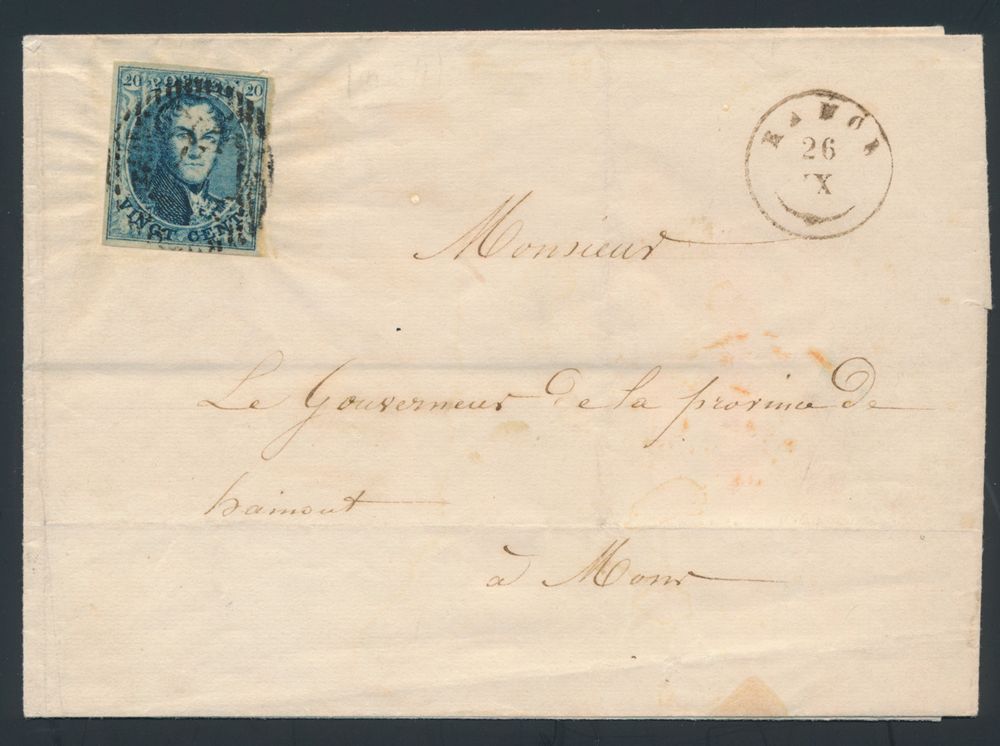 20 20
VINGT CENT
RANCE
26
IX
Monsieur
Le Gouverneur de la province de
hainaut
à Mons